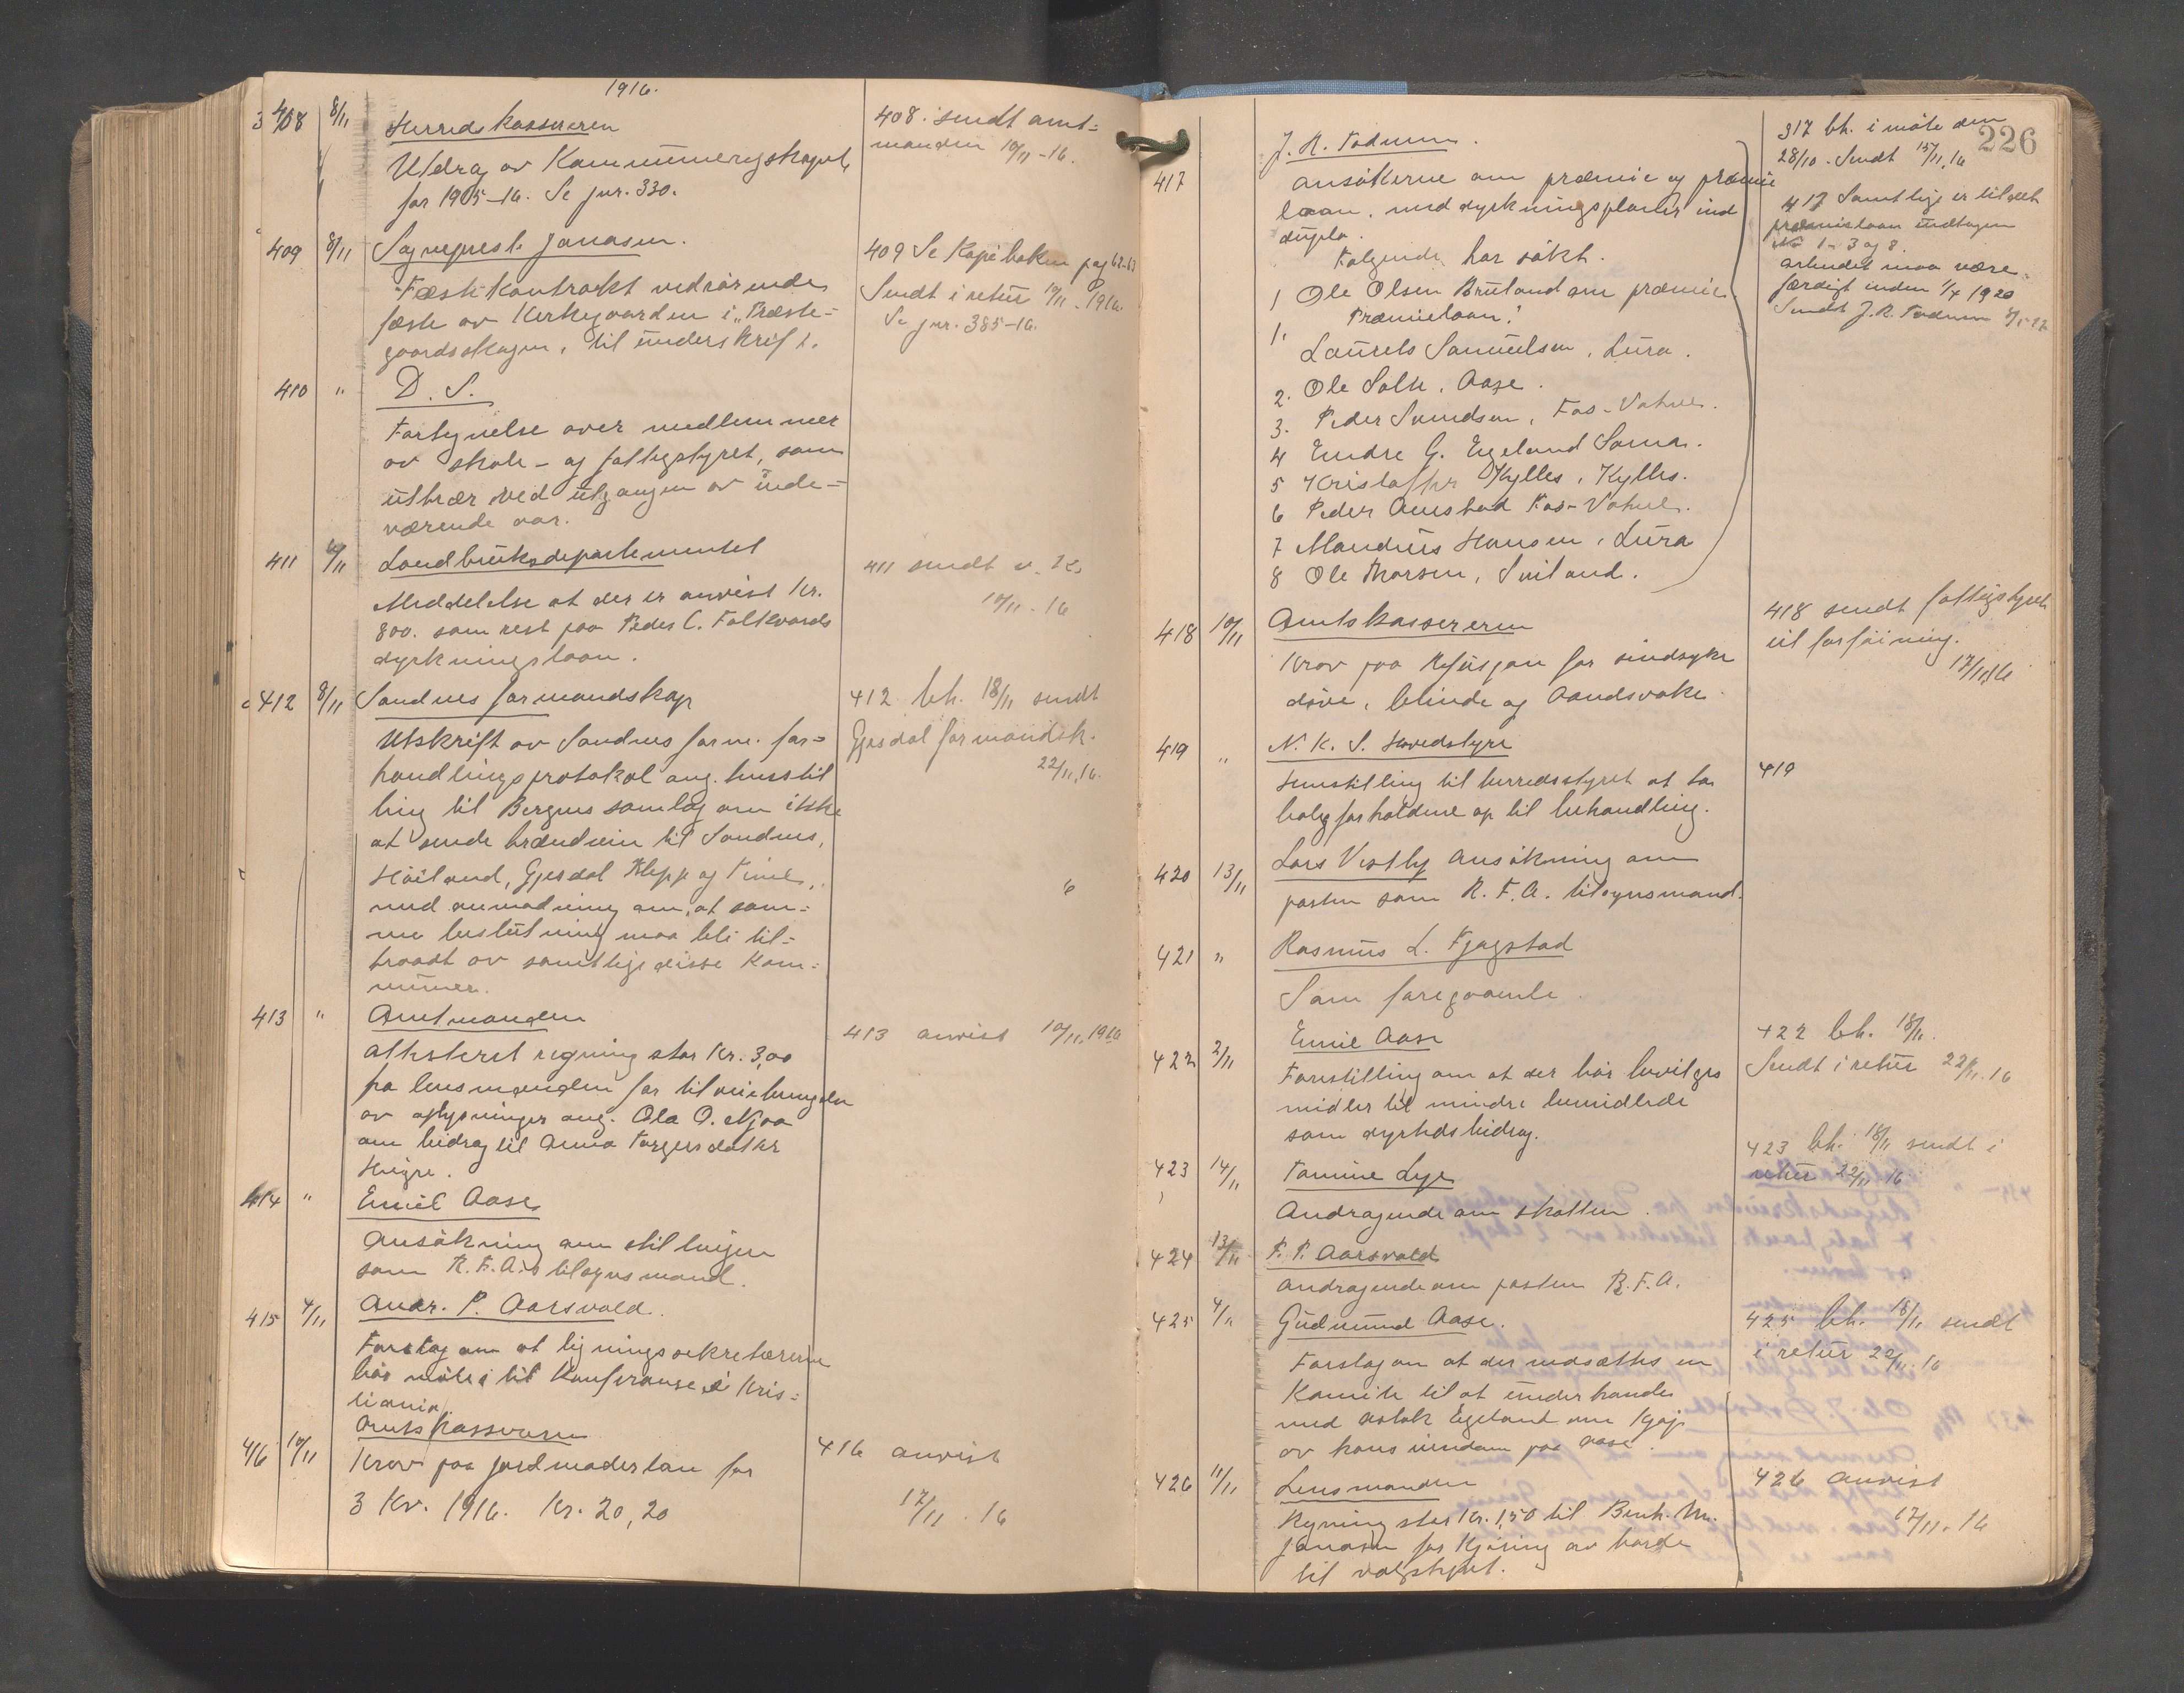 1916.
408 8/11 Herredskassereren
Utdrag av Kommuneregnskapet
for 1915-16. Se jur. 330.
408. sendt amt=
manden 10/11-16.
409 8/11 Sogneprest Jonasen.
Fæstekontrakt vedrørende
fæste av Kirkegaarden i "Præste=
gaardsskogen, til underskrift.
409 Se Kopiboken pag 62-63
Sendt i retur 10/11-1916
Se jur. 385-16.
410 " D. S.
Fortegnelse over medlemmer
av skole- og fattigstyret, som
uttrær ved utgangen av inde=
værende aar.
411 6/11 Landbruksdepartementet
Meddelelse at der er anvist Kr.
800. som rest paa Peder C. Folkvords
dyrkningslaan.
411 sendt
10/11-16
412 8/11 Sandnes formandskap
Utskrift av Sandnes form. for=
handlingsprotokol ang. henstil
ling til Bergens samlag om ikke
at sende brændevin til Sandnes,
Høiland, Gjesdal Klepp og Time,
med anmodning om, at sam=
me beslutning maa bli til=
traadt av samtlige disse Kom=
muner.
412 bh. 18/11 sendt
Gjesdal formandsk.
22/11.16.
413 " Amtmanden
attesteret regning stor Kr. 3,00
fra lensmanden for tilveiebringelse
av oplysninger ang. Ola O. Njaa
om bidrag til Anna Torgersdatter
Høigre.
413 anvist 10/11.1916
414 " Emil Aase
Ansökning om stillingen
som R.F.A.s tilsynsmand.
415 4/11 Andr. P. Aarsvold.
Forslag om at ligningssekretærerne
bör möte i til Konferanse i Kris=
tiania.
416 10/11 Amtskassereren
Krav paa jordmoderløn for
3 Kv. 1916. Kr. 20,20
416 anvist
17/11.16
226
417 J. R. Fodnum.
ansökerne om præmie og præmie
laan, med dyrkningsplaner ind
dupla.
Følgende har søkt.
1 Ole Olsen Brueland om præmie
Præmielaan:
1. Laurets Samuelsen, Lura.
2. Ole Salte, Aase.
3. Peder Svendsen, Fos-Vatne.
4 Endre G. Egeland Soma.
5 Kristoffer Kylles, Kylles.
6 Peder Aunstad Fos-Vatne.
7 Mandius Hansen, Lura
8 Ole Thorsen, Sviland.
317 bh. i møte den
28/10. Sendt 15/11.16
417 Samtlige er tildelt
præmielaan undtagen
No 1-3 og 8.
arbeidet maa være
færdigt inden 1/7 1920
Sendt J. R. Fodnum
418 10/11 Amtskassereren
Krav paa Refusjon for sindsyke
døve, blinde og Aandsvake.
418 sendt fattigstyret
til forføining.
17/11.16
419 " N. K. S. Hovedstyre
Henstilling til herredsstyret at ta
boligforholdene op til behandling.
419
420 13/11 Lars Vestly Ansökning om
posten som R. F. A. tilsynsmand.
421 " Rasmus L. Fjogstad
Som foregaaende.
422 2/11 Emil Aase
Forestilling om at der bør bevilges
midler til mindre bemidlede
som dyrtidsbidrag.
422 bh. 18/11.
Sendt i retur 22/11.16
423 14/11 Tomine Lye
Andragende om skatten.
423 bh. 18/11 sendt i
retur 22/11 16
424 13/11 P. P. Aarsvold
andragende om posten R.F.A.
425 4/11 Gudmund Aase.
Forslag om at der nedsættes en
Komite til at underhandle
med Aslak Egeland om Kjøp
av hans eiendom paa Aase.
425 bh. 18/11 sendt
i retur 22/11.16
426 11/11 Lensmanden
Regning stor Kr. 1,50 til Bernh. M.
Jonasen for Kjøring av borde
til valgstyret.
426 anvist
17/11-16